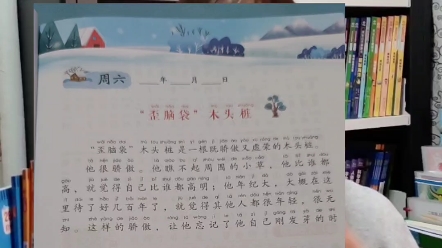 周六 ____年____月____日
“歪脑袋”木头桩
“歪脑袋”木头桩是一根既骄傲又虚荣的木头桩。
他很骄傲。他瞧不起周围的小草，他比谁都
高，就觉得自己比谁都高明；他年纪大，大概在这
里待了好几百年了，就觉得其他人都很年轻，很无
知。这样的骄傲，让他忘记了他自己刚发芽的时